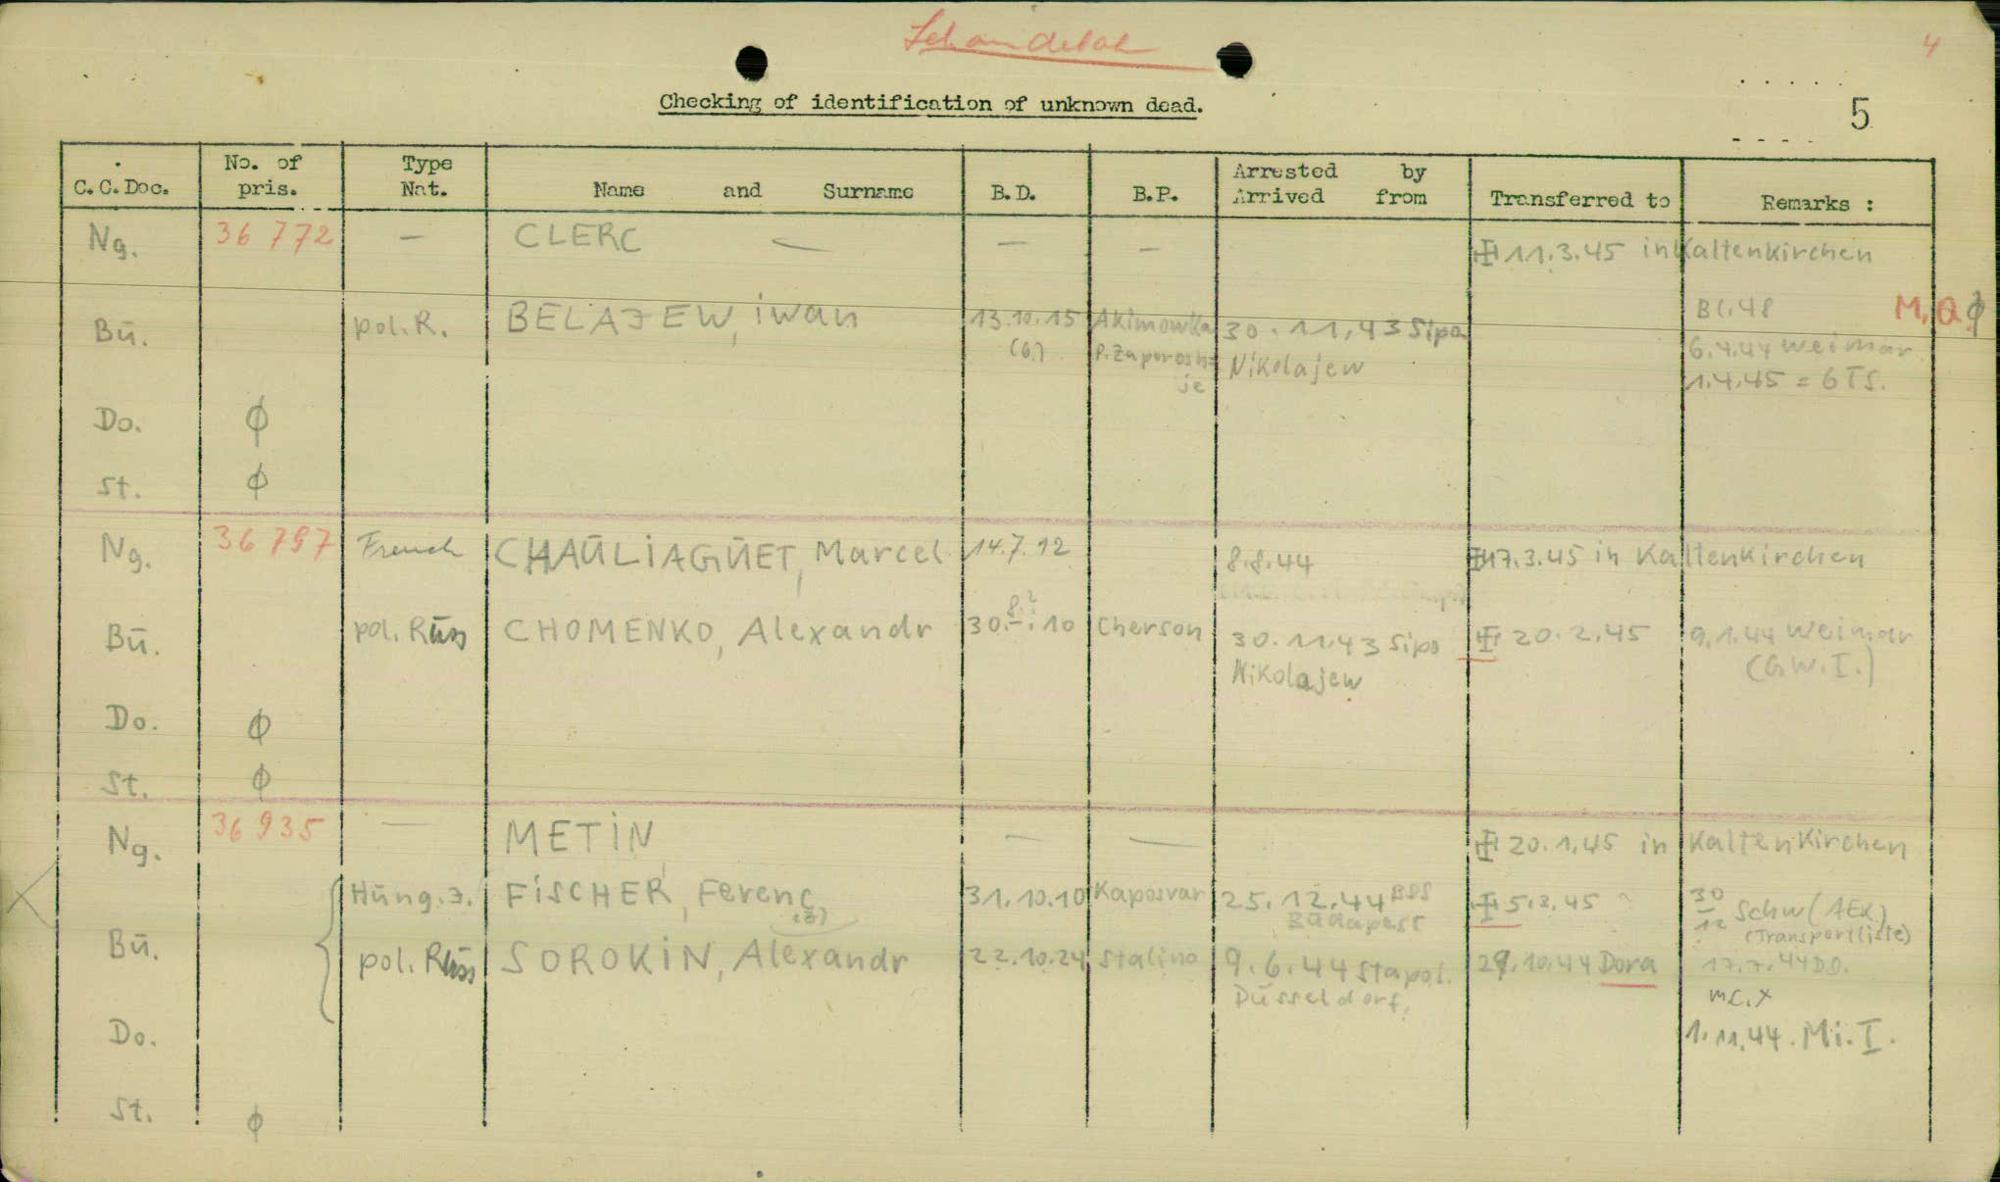 Schandelah
4
Checking of identification of unknown dead.
5
C.C.Doc. No. of pris. Type Nat. Name and Surname B.D. B.P. Arrested by Arrived from Transferred to Remarks :
Ng. 36 772 — CLERC — — — 11.3.45 in Kaltenkirchen
Bu. pol.R. BELAJEW, iwan 13.10.15 Akimowka 30.11.43 Sipo Bl.48 M.
(6.) P.Zaporosh= Nikolajew 6.4.44 weimar
je 1.4.45 = 6 TS.
Do. ϕ
St. ϕ
Ng. 36 797 French CHAULIAGUET, Marcel 14.7.12 8.8.44 17.3.45 in Kaltenkirchen
8.?
Bu. pol. Russ CHOMENKO, Alexandr 30.–.10 Cherson 30.11.43 Sipo 20.2.45 9.1.44 weimar
Nikolajew (G.W.I.)
Do. ϕ
St. ϕ
Ng. 36 935 — METIN — — 20.1.45 in Kaltenkirchen
Hung.J. FISCHER, Ferenc 31.10.10 Kaposvar 25.12.44 BDS 5.3.45 30/12 Schw (AEK.)
Budapest (Transportliste)
Bu. pol. Russ SOROKIN, Alexandr 22.10.24 Stalino 9.6.44 Stapol. 29.10.44 Dora 17.7.44 DO.
Düsseldorf. m.c.x
Do. 1.11.44. Mi. I.
St. ϕ